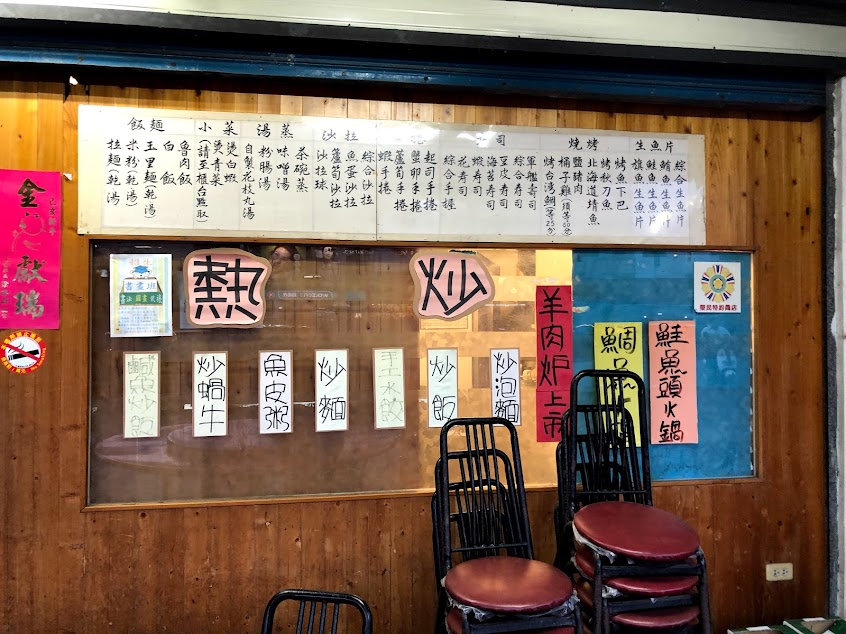 生魚片
綜合生魚片
鮪魚生魚片
鮭魚生魚片
旗魚生魚片
燒烤
烤魚下巴
烤秋刀魚
北海道鯖魚
桶子雞(須等60分)
鹽豬肉
烤台湾鯛(等25分)
司
軍艦壽司
綜合壽司
豆皮壽司
海苔壽司
蝦壽司
花壽司
綜合手捲
起司手捲
蟹卵手捲
蘆筍手捲
蝦手捲
沙拉
綜合沙拉
魚蛋沙拉
蘆筍沙拉
沙拉球
湯蒸
茶碗蒸
味噌湯
粉腸湯
自製花枝丸湯
小菜
燙白蝦
燙青菜
(請至櫃台點取)
飯麵
魯肉飯
白飯
玉里麵(乾湯)
米粉(乾湯)
拉麵(乾湯)
熱炒
書畫班
鹹魚炒飯
炒蝸牛
魚皮粥
炒麵
手工水餃
炒飯
炒泡麵
羊肉炉上市
鯛魚
鮭魚頭火鍋
榮民特約商店
獻瑞